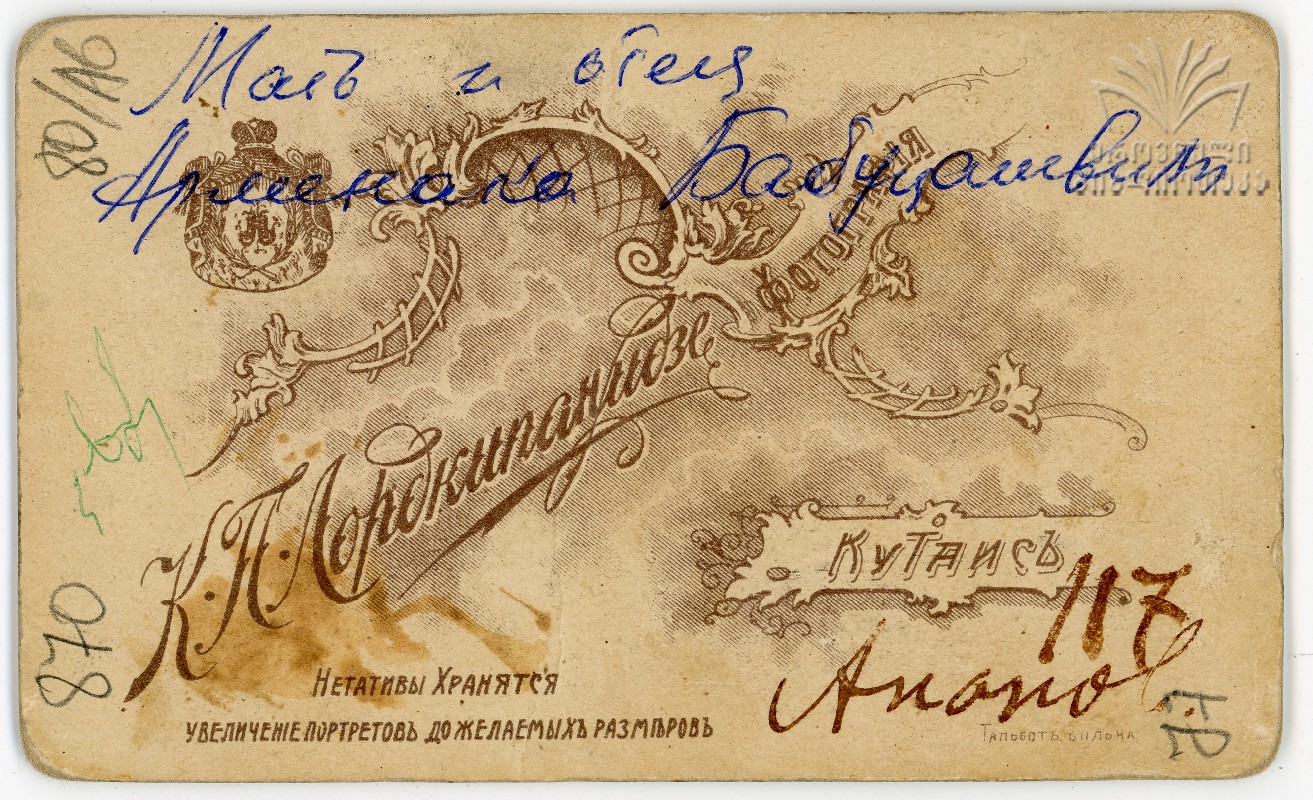 80/АБ
Мать и отец
Арменака Бабуцашвили
ФОТОГРАФІЯ
К. П. Лордкипанидзе
КУТАИСЪ
117
870
НЕГАТИВЫ ХРАНЯТСЯ
УВЕЛИЧЕНІЕ ПОРТРЕТОВЪ ДО ЖЕЛАЕМЫХЪ РАЗМѢРОВЪ
ТАЛЬБОТЪ. ВИЛЬНА